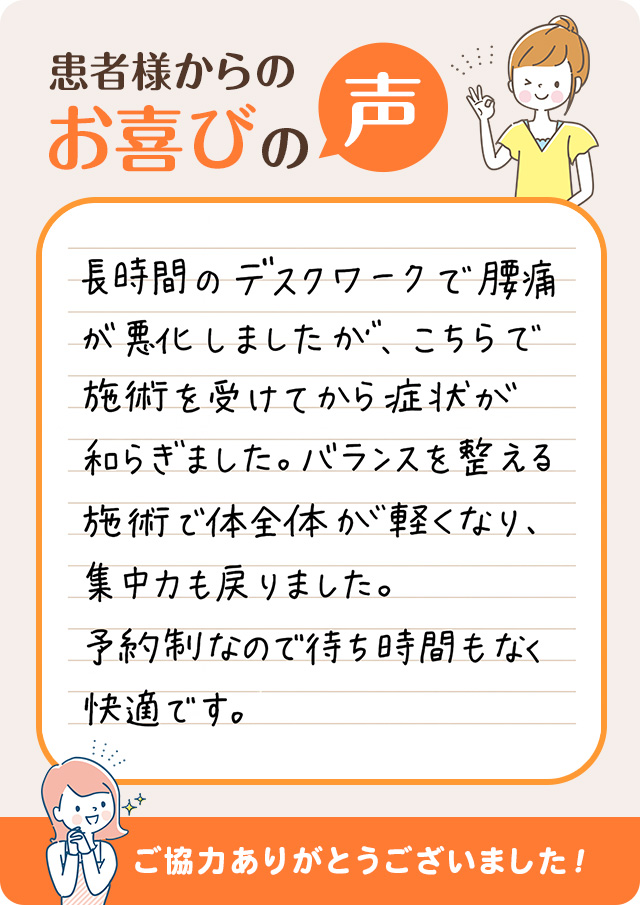 患者様からの
お喜びの声
長時間のデスクワークで腰痛
が悪化しましたが、こちらで
施術を受けてから症状が
和らぎました。バランスを整える
施術で体全体が軽くなり、
集中力も戻りました。
予約制なので待ち時間もなく
快適です。
ご協力ありがとうございました!